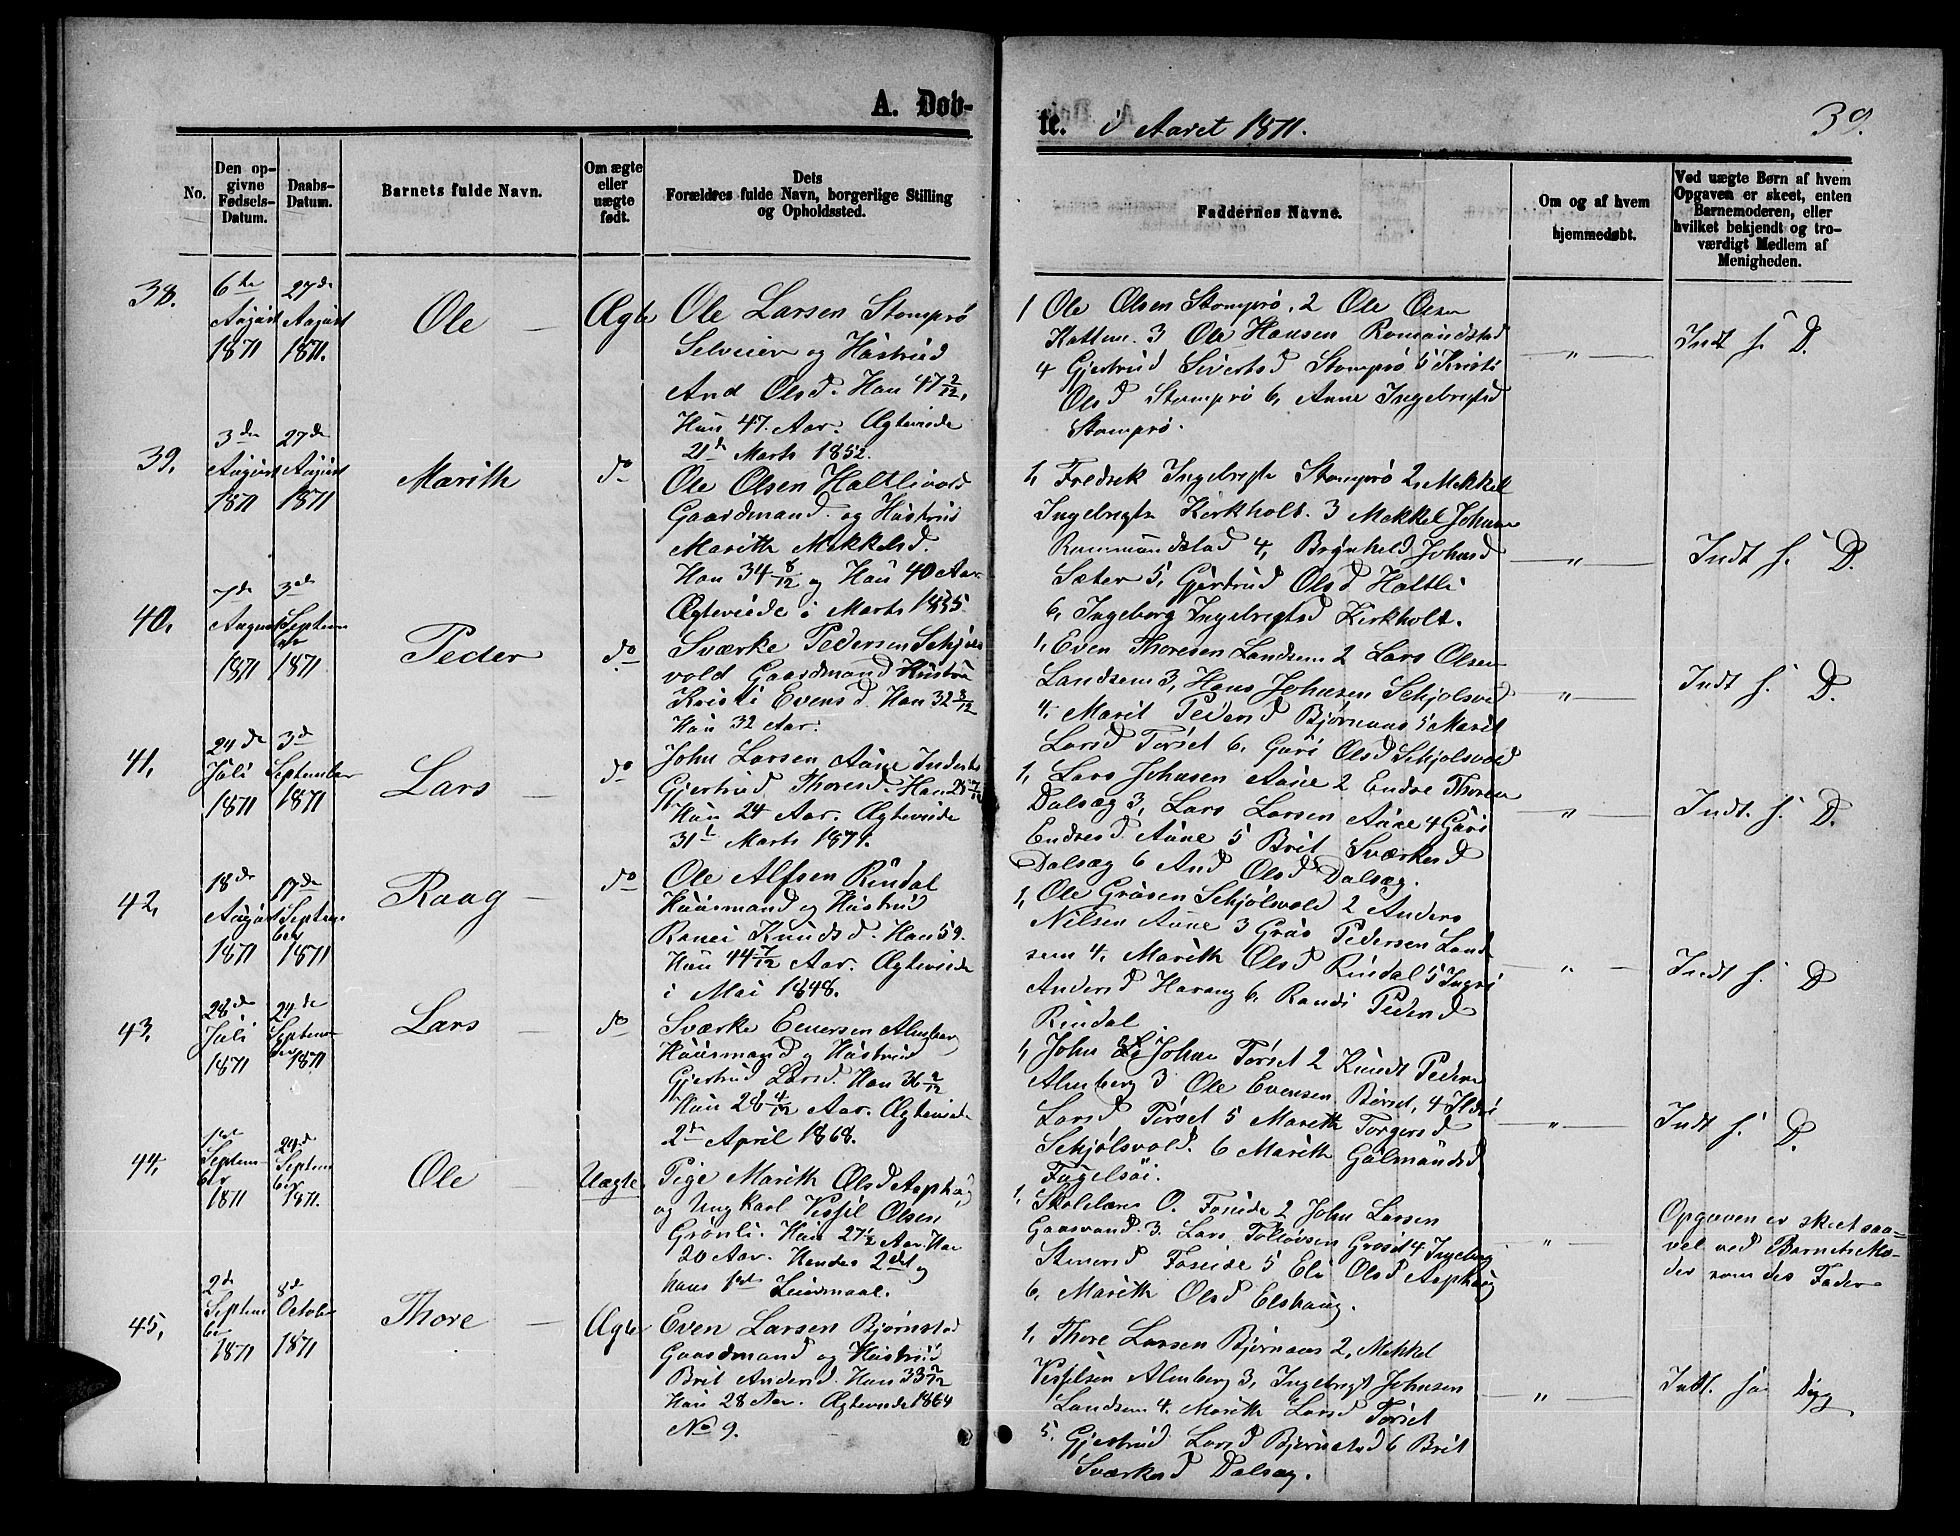 A. Døb-
te. i Aaret 1871.
39.
No.
Den op-
givne
Fødsels-
Datum.
Daabs-
Datum.
Barnets fulde Navn.
Om ægte
eller
uægte
født.
Dets
Forældres fulde Navn, borgerlige Stilling
og Opholdssted.
Faddernes Navne.
Om og af hvem
hjemmedøbt.
Ved uægte Børn af hvem
Opgaven er skeet, enten
Barnemoderen, eller
hvilket bekjendt og tro-
værdigt Medlem af
Menigheden.
38.
6te
August
1871
27de
August
1871.
Ole
Ægte
Ole Larsen Stomprø
Selveier og Hustrud
And Olsd. Han 47 2/12,
Hun 47. Aar. Ægteviede
21de Marts 1852.
1 Ole Olsen Stomprø, 2 Ole Olsen
Kattem. 3 Ole Hansen Romundstad
4 Gjertrud Sivertsd Stomprø 5 Kristi
Olsd Stomprø 6, Anne Ingebrigtsd
Stomprø.
"
Indt f. D.
39.
3de
August
1871
27de
August
1871
Marith
do
Ole Olsen Haltlivold
Gaardmand og Hustrud
Marith Mekkelsd.
Han 34 8/12 og Hun 40 Aar
Ægteviede i Marts 1855.
1, Fredrek Ingebrigts Stomprø 2, Mekkel
Ingebrigts Kirkholt. 3 Mekkel Johnse
Rommundstad 4, Brynheld Johnsd
Sæter 5, Gjertrud Olsd Haltli
6, Ingeborg Ingebrigtsd Kirkholt.
"
Indt f. D.
40.
7de
August
1871
3de
Septem
ber
1871
Peder
do
Sværke Pedersen Schjøls
vold Gaardmand Hustru
Kristi Evensd. Han 32 8/12
Hun 32 Aar.
1, Even Thoresen Landsem 2 Lars Olsen
Landsem 3, Hans Johnsen Schjølsvold
4. Marit Pedersd Bjørnaas 5 Marit
Larsd Torset 6, Guri Olsd Schjølsvold
"
Indt f. D.
41.
24de
Juli
1871
3de
September
1871
Lars
do
John Larsen Aune Inderst
Gjertrud Thoresd. Han 25 7/12
Hun 24 Aar. Ægteviede
31t Marts 1871.
1, Lars Johnsen Aune 2 Endre Thorese
Dalsæg 3, Lars Larsen Aune 4 Guri
Endresd Aune 5 Brit Sværkesd
Dalsæg 6 And Olsd Dalsæg.
"
Indt. f. D.
42.
18de
August
1871
17de
Septem
ber
1871
Raag
do
Ole Alfsen Rindal
Huusmand og Hustrud
Ranei Knudsd. Han 59.
Hun 44 7/12 Aar. Ægteviede
i Mai 1848.
1, Ole Gråsen Schjølsvold 2 Anders
Nilsen Aune 3 Grås Pedersen Land
sem 4, Marith Olsd Rindal 5 Ingri
Andersd Harang 6, Randi Pedersd
Rindal
"
Indt f. D
43.
28de
Juli
1871
24de
Septem
ber 1871
Lars
do
Sværke Evensen Almberg
Huusmand og Hustrud
Gjertrud Larsd. Han 36 2/12
Hun 28 4/12 Aar. Ægteviede
2de April 1868.
1, John Johnse Torset 2 Knudt Peders
Almberg 3 Ole Evensen Børset, 4 Ildri
Larsd Torset 5 Marith Torgersd
Schjølsvold. 6 Marith Gulmundsd
Fugelsøi.
"
Indt f. D.
44.
1ste
Septem
ber
1871
24de
Septem
ber
1871.
Ole
Uægte
Pige Marith Olsd Asphaug
og Ungkarl Kissel Olsen
Grønli. Hun 27 1/2 Aar. Han
20 Aar. Hendes 2det og
hans 1ste Leiermaal.
1, Skolelærer O. Foseide 2 John Larsen
Gaasvand. 3. Lars Tollevsen Grøset 4 Ingeborg
Stenersd Foseide 5 Eli Olsd Asphaug
6, Marith Olsd Elshaug.
"
Opgaven er skeet saa-
vel ved Barnets Mo-
der som des Fader
45.
2de
Septem
ber
1871
8de
October
1871
Thore
Ægte
Even Larsen Bjørnstad
Gaardmand og Hustrud
Brit Andersd. Han 33 5/12
Hun 28 Aar. Ægteviede 1864
No 9.
1, Thore Larsen Bjørnaas 2, Mekkel
Kisselsen Almberg 3, Ingebrigt Johnsen
Landsem 4. Marith Larsd Torset
5. Gjertrud Larsd Bjørnstad 6 Brit
Sværkesd Dalsæg.
"
Indt. for Dyg